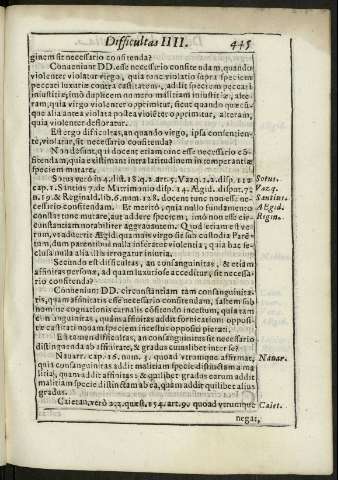 Difficultas IIII. 445
ginem sit necessario confitenda?
Conueniunt DD. esse necessario confitendam, quando
violenter violatur virgo, quia tunc violatio supra speciem
peccati luxuriæ contra castitatem, addit speciem peccati
iniustitiæ, imo duplicem numero malitiam iniustitiæ, alte-
ram, quia virgo violenter opprimitur, sicut quando quæcũ-
que alia antea violata postea violẽter opprimitur, alteram,
quia violenter defloratur.
Est ergo difficultas, an quando virgo, ipsa consentien-
te, violatur, sit necessario confitenda?
Non desunt, qui docent etiam tunc esse necessario cõ-
fitendam, quia existimant intra latitudinem intemperantiæ
speciem mutare.
Sotus verò in 4. dist. 18. q. 2. art. 5. Vazq. 1. 2. disp. 110 Sotus.
cap. 1. Santius 7. de Matrimonio disp. 14. Ægid. disput. 7 Vazq.
n. 19. & Reginald. lib. 6. num. 128. docent tunc non esse ne- Santius.
cessario confitendam. Et meritò; quia nullo fundamento Ægid.
constat tunc mutare, aut addere speciem, imò non esse cir- Regin.
cunstantiam notabiliter aggrauantem. Quod etiam est ve-
rum, vt aduertit Ægid. quamuis virgo sit sub custodia Parẽ-
tum, dum parentibus nulla inferatur violentia, quia hac se-
clusa nulla alia illis irrogatur iniuria.
Secundo est difficultas, an consanguinitas, & etiam
affinitas personæ, ad quam luxuriose acceditur, sit necessa-
rio confitenda?
Conueniunt DD. circunstantiam tam consanguinita-
tis, quam affinitatis esse necessario confitendam, saltem sub
nomine cognationis carnalis confitendo incestum, quia tam
consanguinitas, quàm affinitas addit fornicationi opposi-
tæ castitati nouam speciem incestus oppositi pietati.
Est tamen difficultas, an consanguinitas sit necessario
distinguenda ab affinitate, & gradus cuiuslibet inter se?
Nauarr. cap. 16. num. 3. quoad vtrumque affirmat, Nauar.
quia consanguinitas addit malitiam specie distinctam a ma
litia, quam addit affinitas: & quilibet gradus earum addit
malitiam specie distinctam ab ea, quàm addit quilibet alius
gradus.
Caietan. verò 2. 2. quæst. 154. art. 9. quoad vtrumque Caiet.
negat,